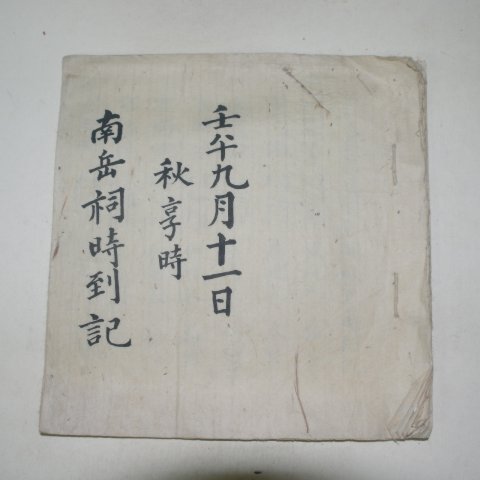 壬午九月十一日
秋享時
南岳祠時到記